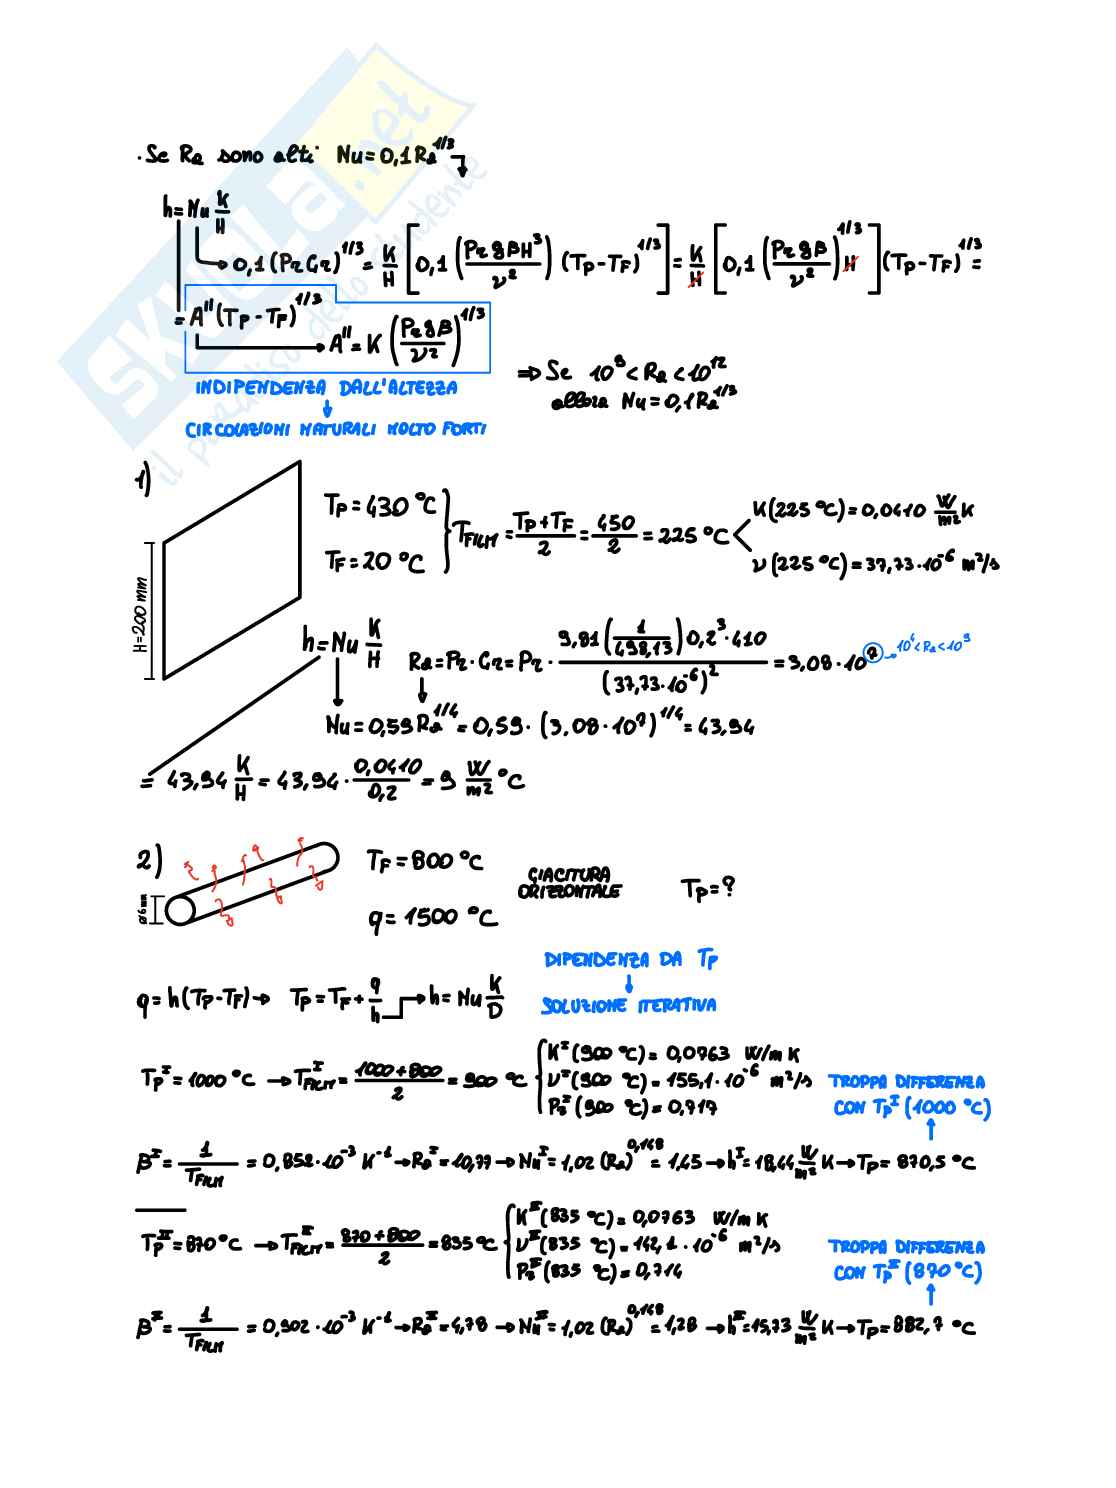 SKUOLA.net
il paradiso dello studente
· Se Ra sono alti Nu = 0,1 Ra^1/3
h = Nu K/H
0,1 (Pr Gr)^1/3 = K/H [0,1 (Pr g β H^3 / ν^2) (Tp - TF)^1/3] = K/H [0,1 (Pr g β / ν^2)^1/3 H] (Tp - TF)^1/3 =
= A'' (Tp - TF)^1/3
A'' = K (Pr g β / ν^2)^1/3
INDIPENDENZA DALL'ALTEZZA
CIRCOLAZIONI NATURALI MOLTO FORTI
⇒ Se 10^9 < Ra < 10^12
allora Nu = 0,1 Ra^1/3
1)
H = 200 mm
Tp = 430 °C
TF = 20 °C
TFILM = (Tp + TF)/2 = 450/2 = 225 °C
K (225 °C) = 0,0410 W/m² K
ν (225 °C) = 37,73 · 10^-6 m²/s
h = Nu K/H
Ra = Pr · Gr = Pr · 9,81 (1/498,13) 0,2^3 · 410 / (37,73 · 10^-6)^2 = 3,08 · 10^7 → 10^4 < Ra < 10^9
Nu = 0,59 Ra^1/4 = 0,59 · (3,08 · 10^7)^1/4 = 43,94
= 43,94 K/H = 43,94 · 0,0410/0,2 = 9 W/m² °C
2)
Ø 6 mm
TF = 800 °C
q = 1500 °C
GIACITURA ORIZZONTALE
Tp = ?
DIPENDENZA DA Tp
SOLUZIONE ITERATIVA
q = h (Tp - TF) → Tp = TF + q/h → h = Nu K/D
Tp^I = 1000 °C → TFILM^I = (1000 + 800)/2 = 900 °C
K^I (900 °C) = 0,0763 W/m K
ν^I (900 °C) = 155,1 · 10^-6 m²/s
Pr^I (900 °C) = 0,717
TROPPA DIFFERENZA
CON Tp^I (1000 °C)
β^I = 1/TFILM = 0,852 · 10^-3 K^-1 → Ra^I = 10,77 → Nu^I = 1,02 (Ra)^0,148 = 1,45 → h^I = 18,44 W/m² K → Tp = 870,5 °C
Tp^II = 870 °C → TFILM^II = (870 + 800)/2 = 835 °C
K^II (835 °C) = 0,0763 W/m K
ν^II (835 °C) = 142,1 · 10^-6 m²/s
Pr^II (835 °C) = 0,714
TROPPA DIFFERENZA
CON Tp^II (870 °C)
β^II = 1/TFILM = 0,902 · 10^-3 K^-1 → Ra^II = 4,78 → Nu^II = 1,02 (Ra)^0,148 = 1,28 → h^II = 15,73 W/m² K → Tp = 882,7 °C